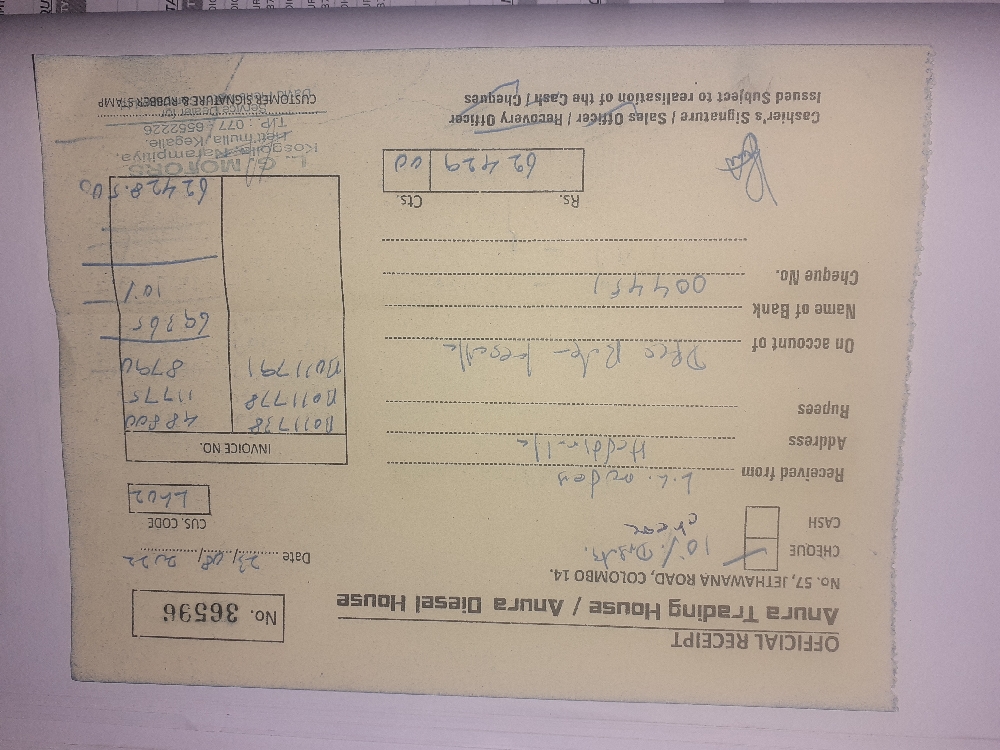 OFFICIAL RECEIPT
Anura Trading House / Anura Diesel House
No. 57, JETHAWANA ROAD, COLOMBO 14.
No. 36596
CHEQUE
10%
CASH
Date 23/08/2022
CUS. CODE
LH02
Received from
Address
Rupees
On account of
Name of Bank
Cheque No. 004451
INVOICE NO.
B011738 48800
B011778 11775
B011791 8790
69365
10%
62428.50
Rs. Cts.
62429 00
Cashier's Signature / Sales Officer / Recovery Officer
Issued Subject to realisation of the Cash / Cheques
L. G MOTORS
Kosgolla, Narampitiya,
Hettimulla, Kegalle.
T/P : 077 - 6562226
Service Dealer for
CUSTOMER SIGNATURE & RUBBER STAMP